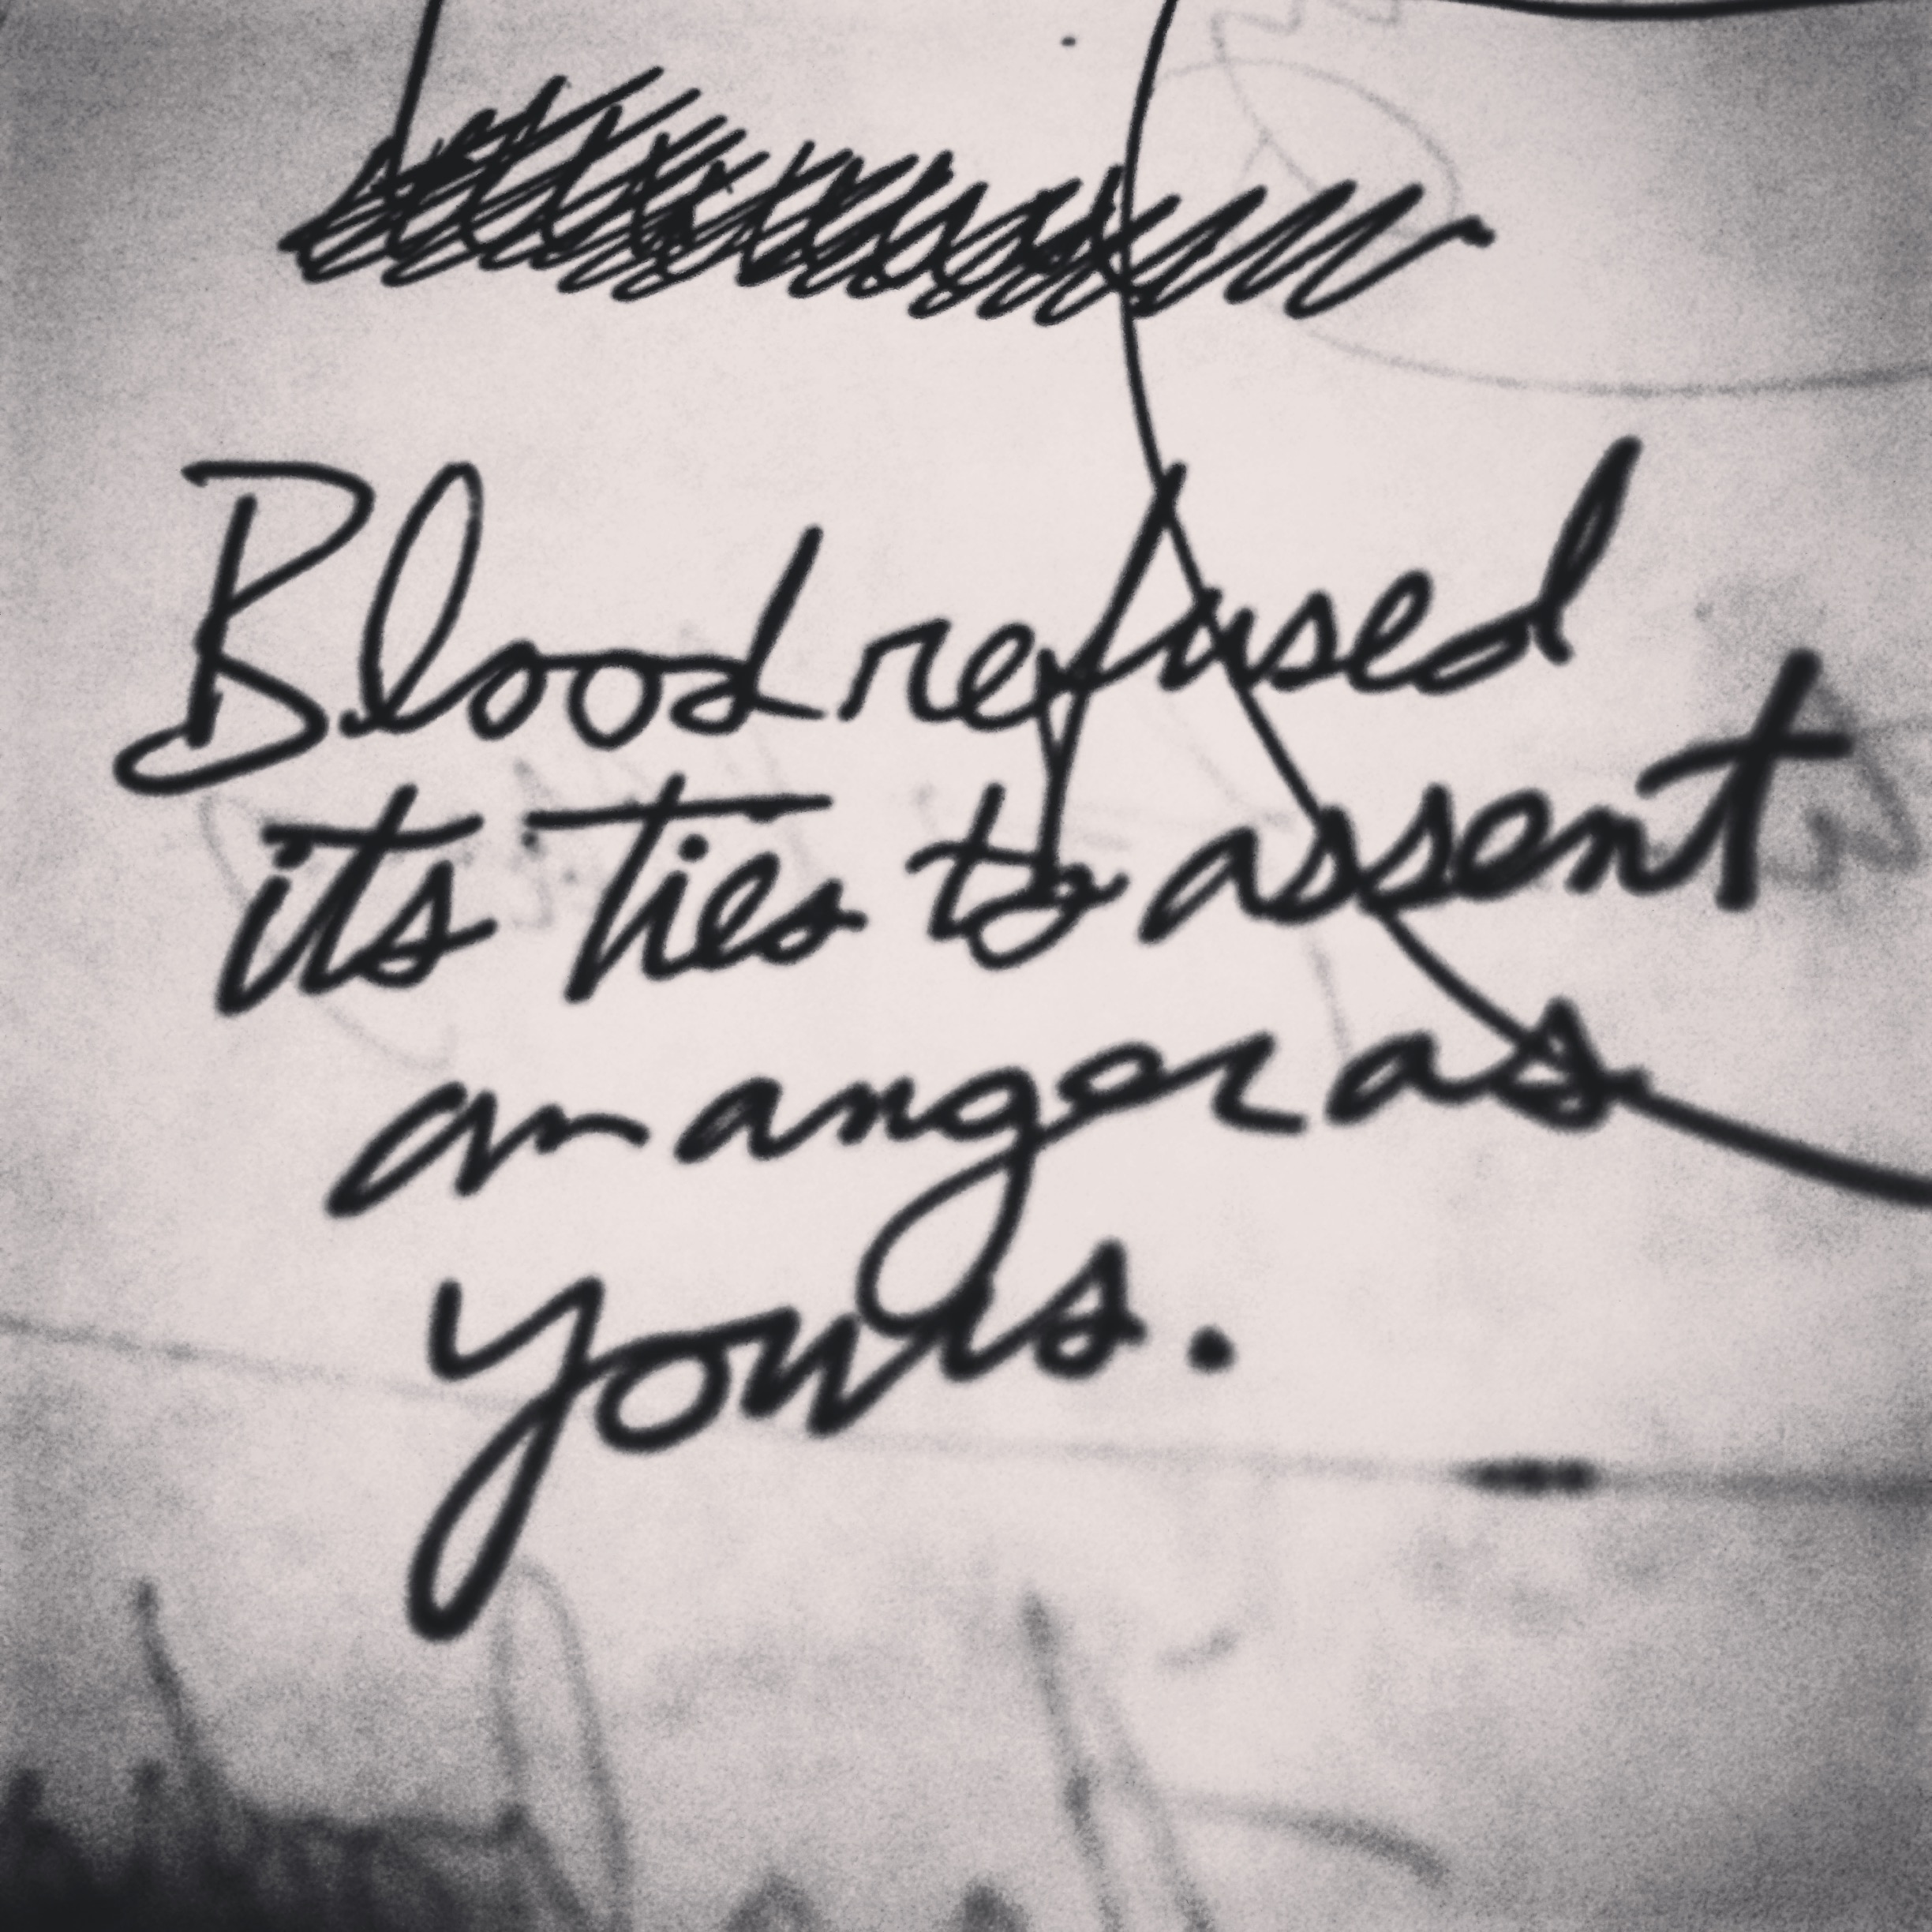 Blood refused
its ties to assent
an anger as
yours.